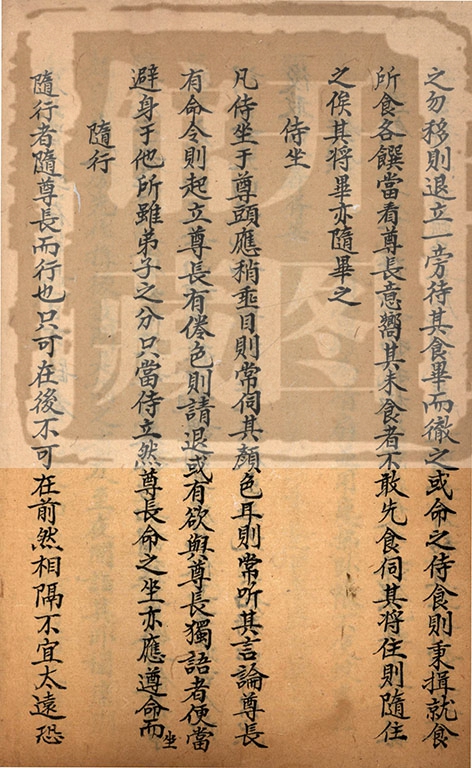 之勿移則退立一旁待其食畢而徹之或命之侍食則秉揖就食
所食各饌當看尊長意嚮其未食者不敢先食伺其將住則隨住
之俟其將畢亦隨畢之
侍坐
凡侍坐于尊頭應稍垂目則常伺其顏色耳則常听其言論尊長
有命令則起立尊長有倦色則請退或有欲與尊長獨語者便當
避身于他所雖弟子之分只當侍立然尊長命之坐亦應遵命而坐
隨行
隨行者隨尊長而行也只可在後不可在前然相隔不宜太遠恐